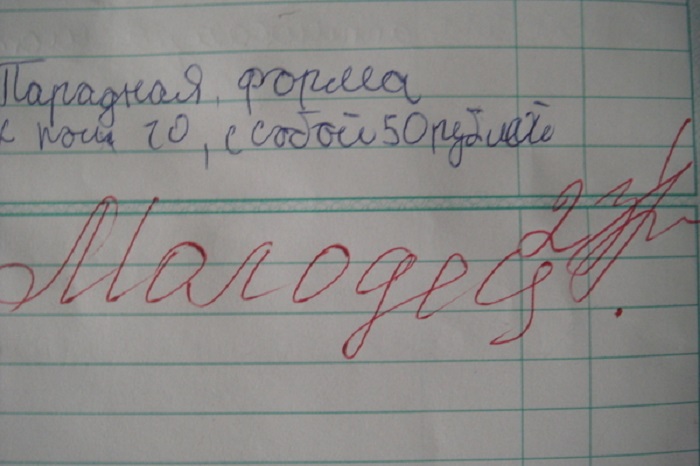 Парадная форма
к 10, с собой 50 рублей
Молодец!